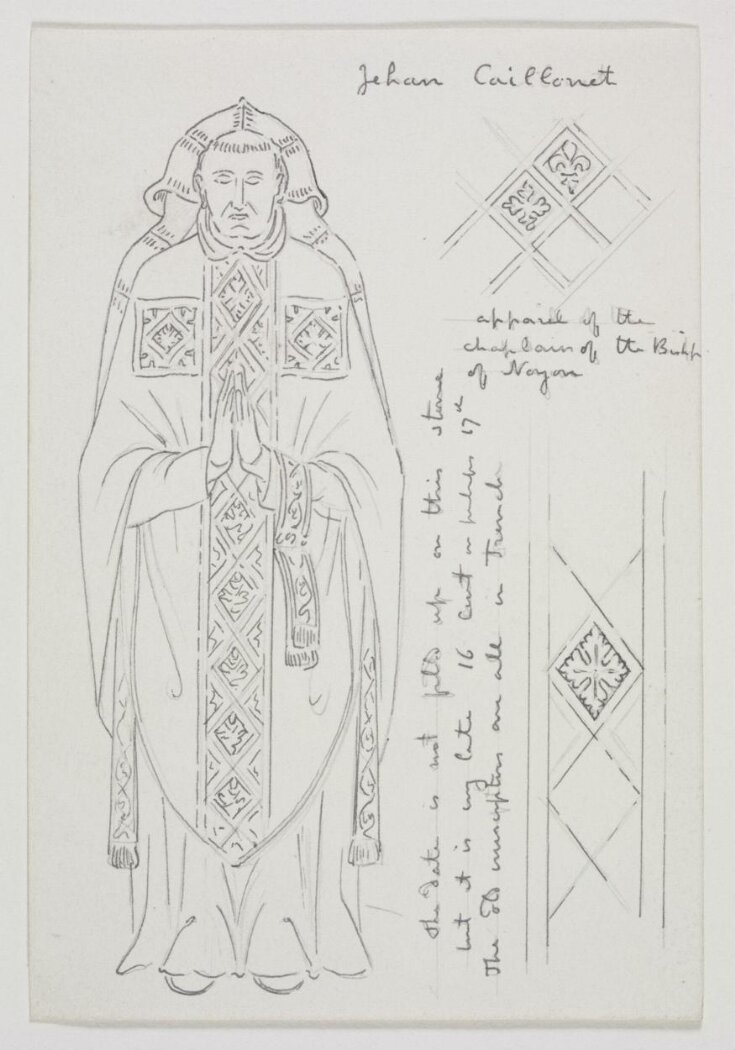 Jehan Caillonet
apparel of the
chaplain of the Bishp
of Noyon
The date is not filld up on this stone
but it is late 16 cent or perhaps 17d
The old inscriptions are all in French